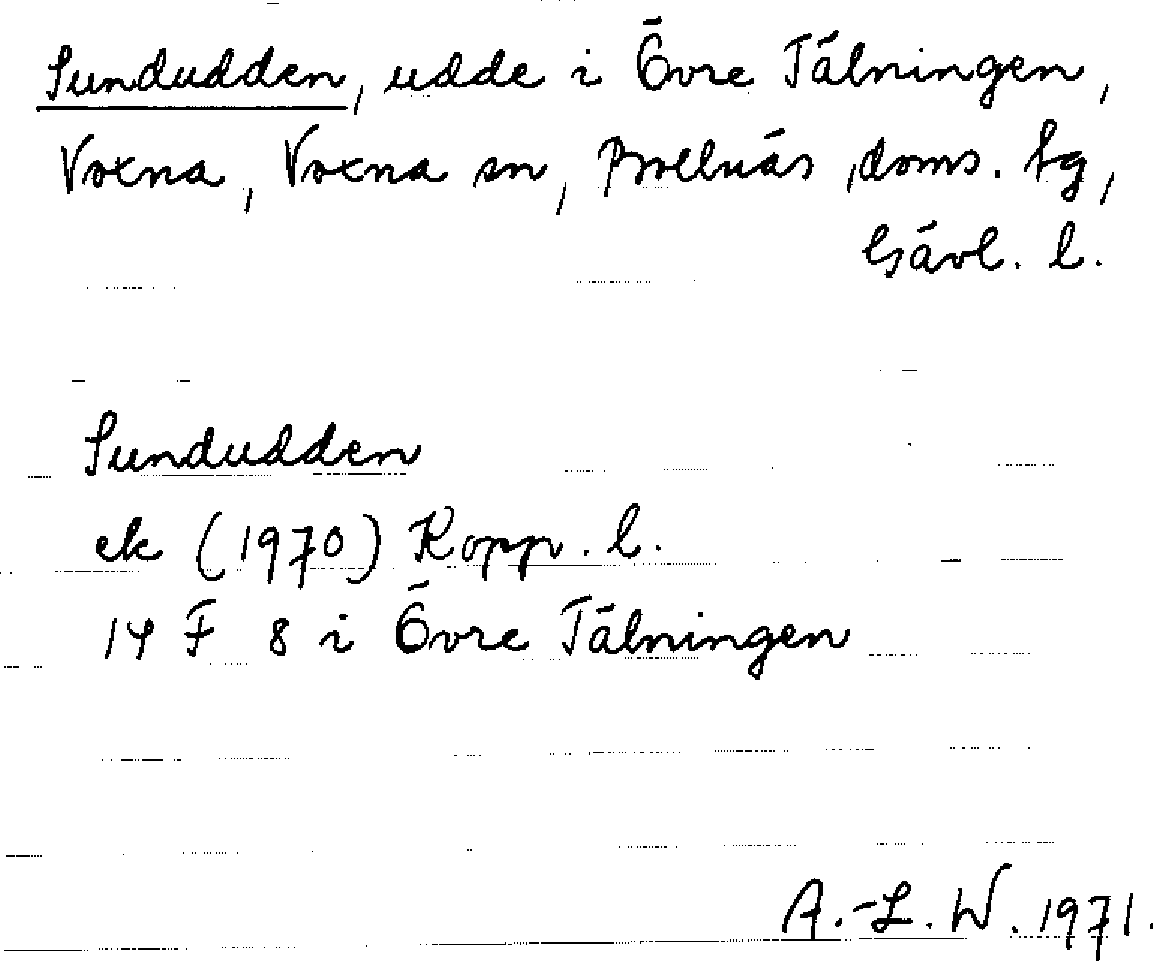 Sundudden, udde i Övre Tälningen,
Voxna, Voxna sn, Bollnäs doms. tg,
Gävl. l.
Sundudden
ek (1970) Kopp. l.
14 F 8 i Övre Tälningen
A.-L. W. 1971.